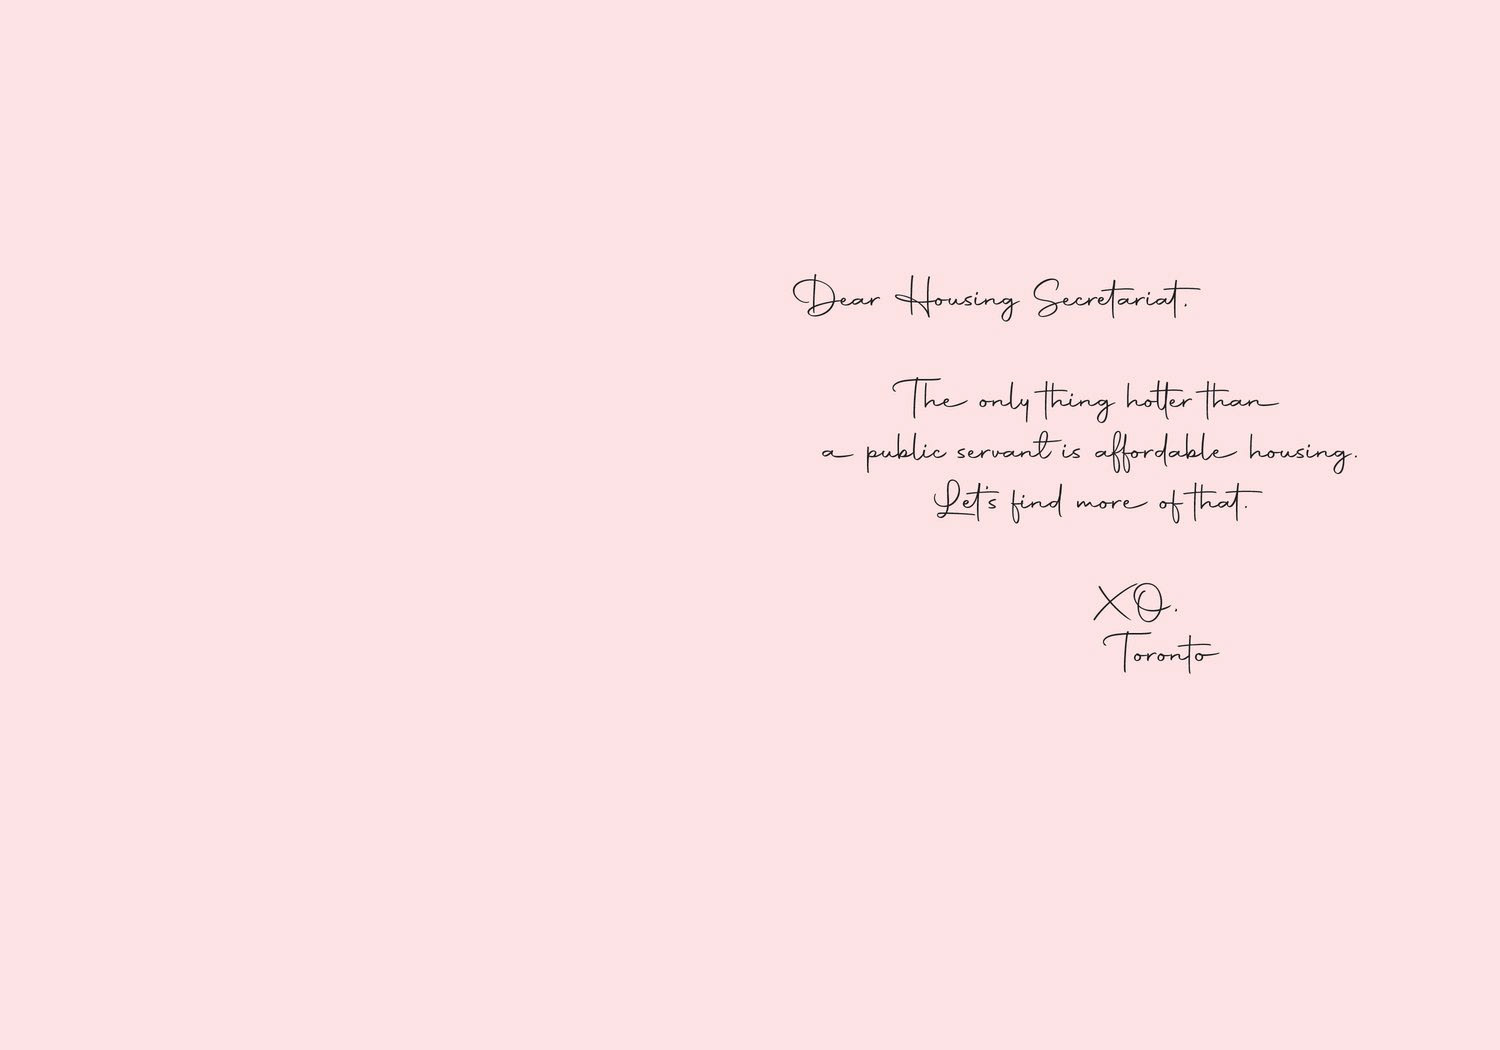 Dear Housing Secretariat,
The only thing hotter than
a public servant is affordable housing.
Let's find more of that.
XO,
Toronto